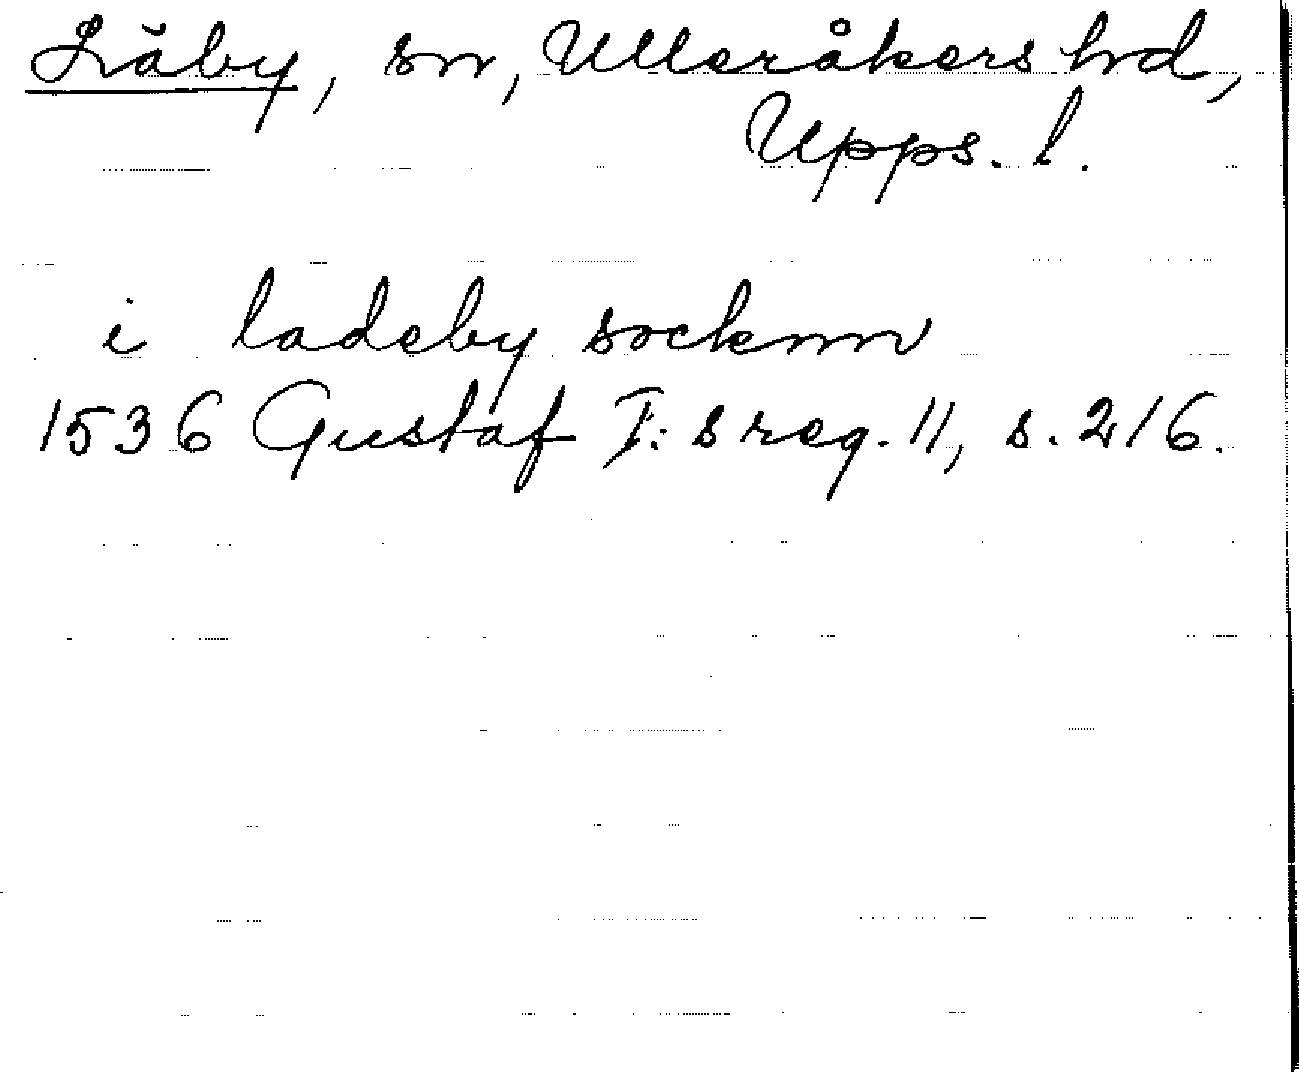 Läby, sn, Ulleråkers hd,
Upps. l.
i ladeby socknn
1536 Gustaf I:s reg. 11, s. 216.